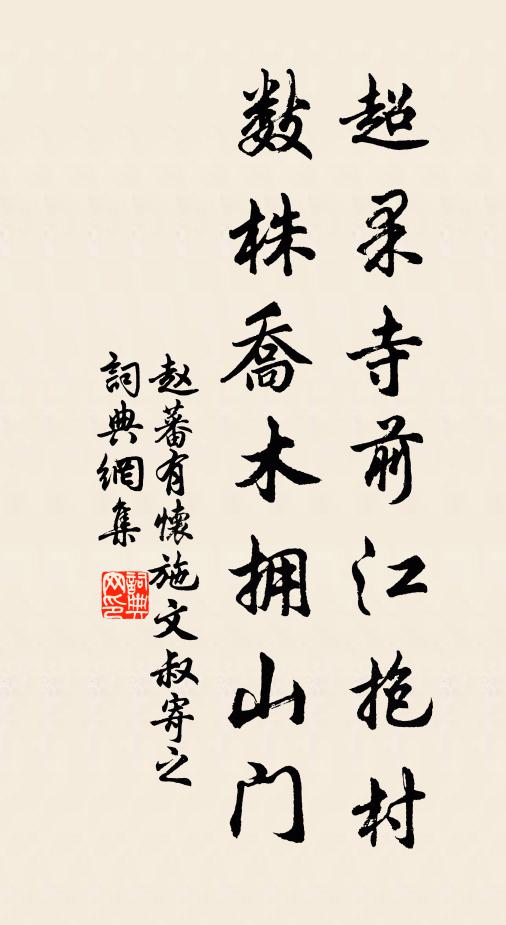 超果寺前江抱村
數株喬木拥山门
赵蕃有懷施文叔寄之
詞典網集
詞典
网印